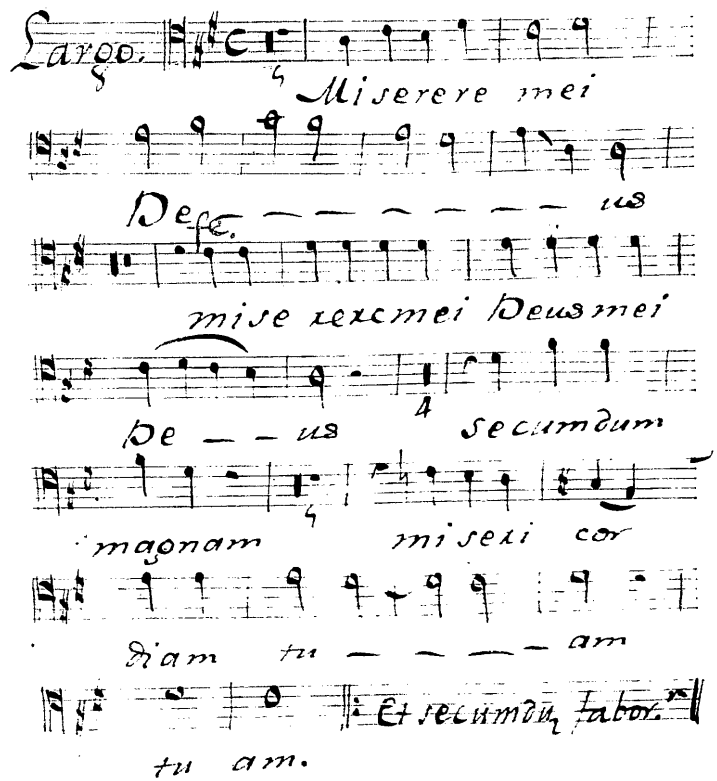 Largo.
Miserere mei
De — — — — — — — us
mise rere mei Deus mei
4
De — — us secumdum
magnam miseri cor
diam tu — — — — am
Et secumdũ labor.
tu am.